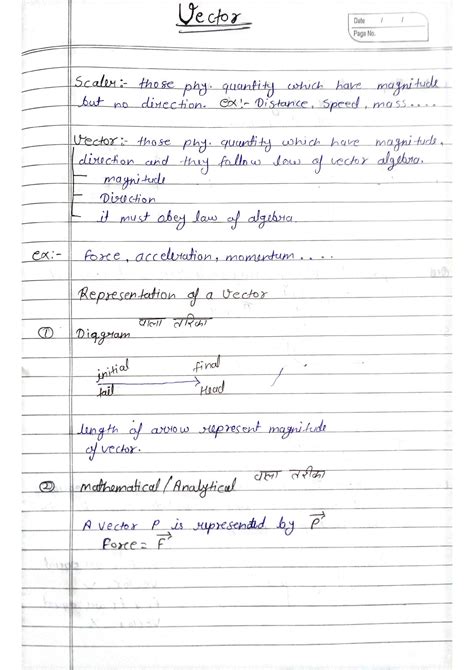 Vector
Date / /
Page No.
Scaler:- those phy. quantity which have magnitude
but no direction. ex:- Distance, Speed, mass....
Vector:- those phy. quantity which have magnitude,
direction and they follow law of vector algebra.
magnitude
Direction
it must obey law of algebra.
ex:- force, acceleration, momentum....
Representation of a Vector
① Diagram वाला तरिका
initial final
tail Head
length of arrow represent magnitude
of vector.
② Mathematical/Analytical वाला तरीका
A vector P is represented by P⃗
Force = F⃗